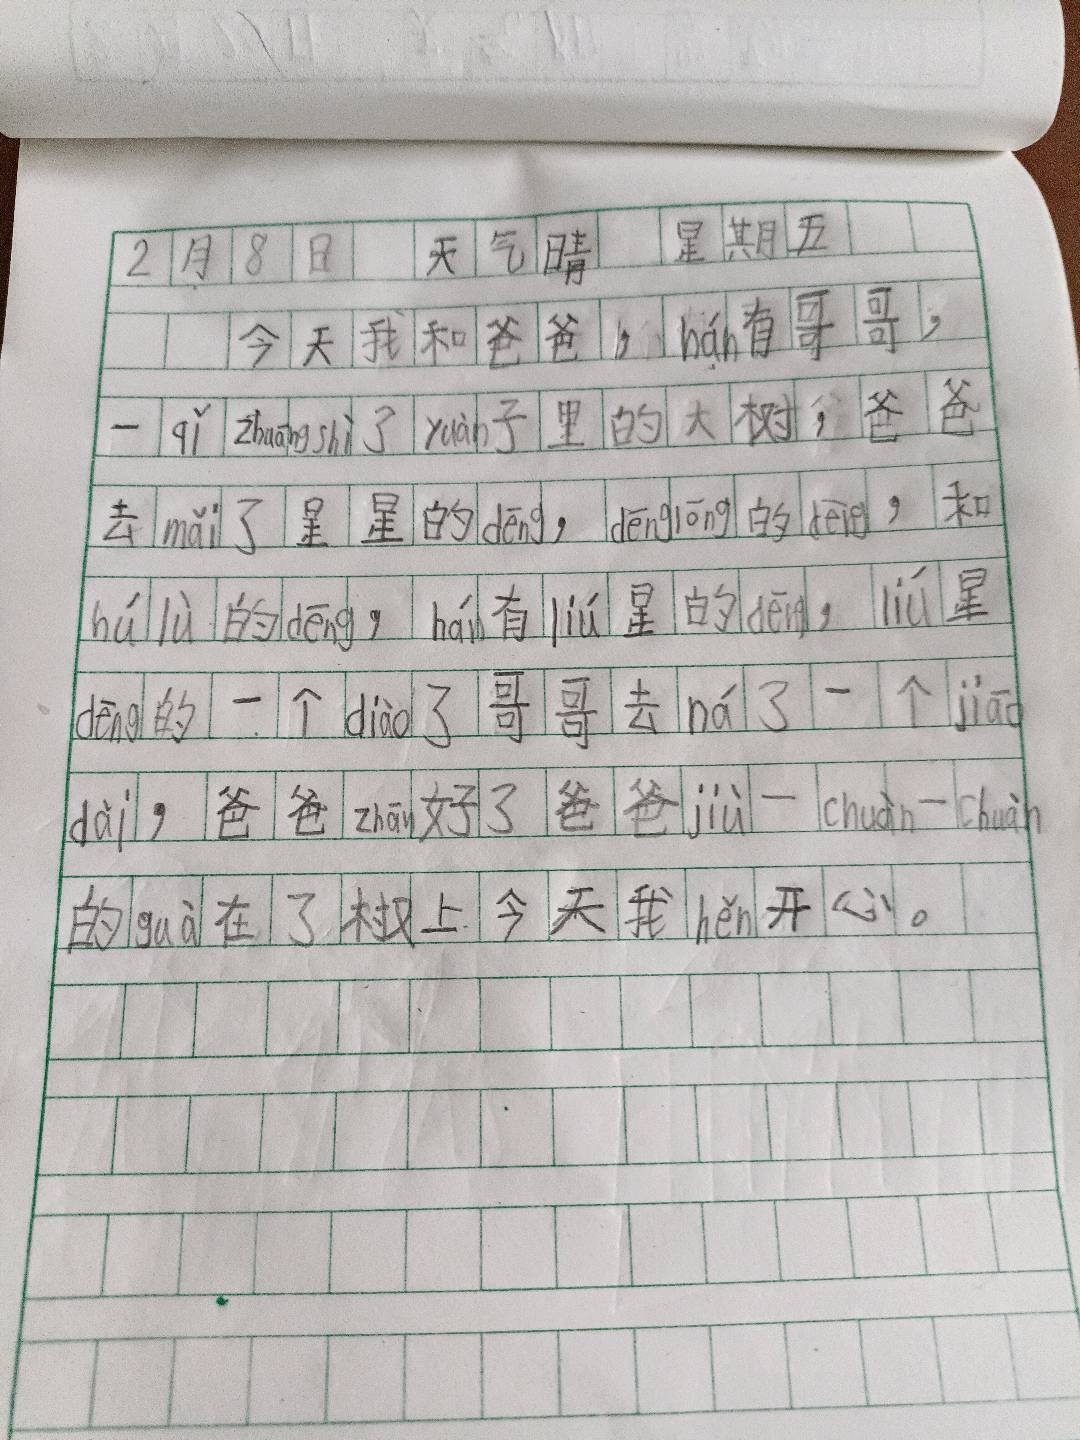 2月8日 天气晴 星期五
今天我和爸爸，hán有哥哥，
一qǐ zhuāngshì了yuàn子里的大树，爸爸
去mǎi了星星的dēng，dēnglōng的dēng，和
húlù的dēng，hán有liú星的dēng，liú星
dēng的一个diào了哥哥去ná了一个jiāo
dài，爸爸zhān好了爸爸jiù一chuàn一chuàn
的guà在了树上今天我hěn开心。